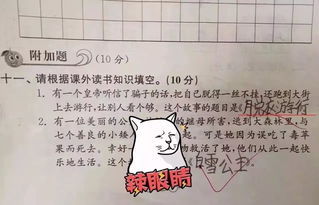 附加题 (10分)
十一、请根据课外读书知识填空。(10分)
1. 有一个皇帝听信了骗子的话,把自己脱得一丝不挂,还跑到大街
上去游行,让别人看个够。这个故事的题目是《脱衣游行
2. 有一位美丽的公 的继母所害,逃到大森林里,与
七个善良的小矮 起。可是她因为误吃了毒苹
果而死去。幸好 物救活了她,他们从此一起快
乐地生活。这 《白雪公主
辣眼睛